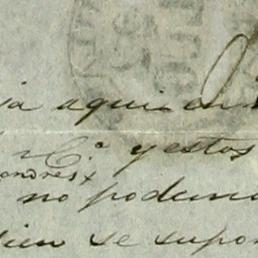 ia aqui en
y Cª y estos
ondres x
no podemo
bien se supo